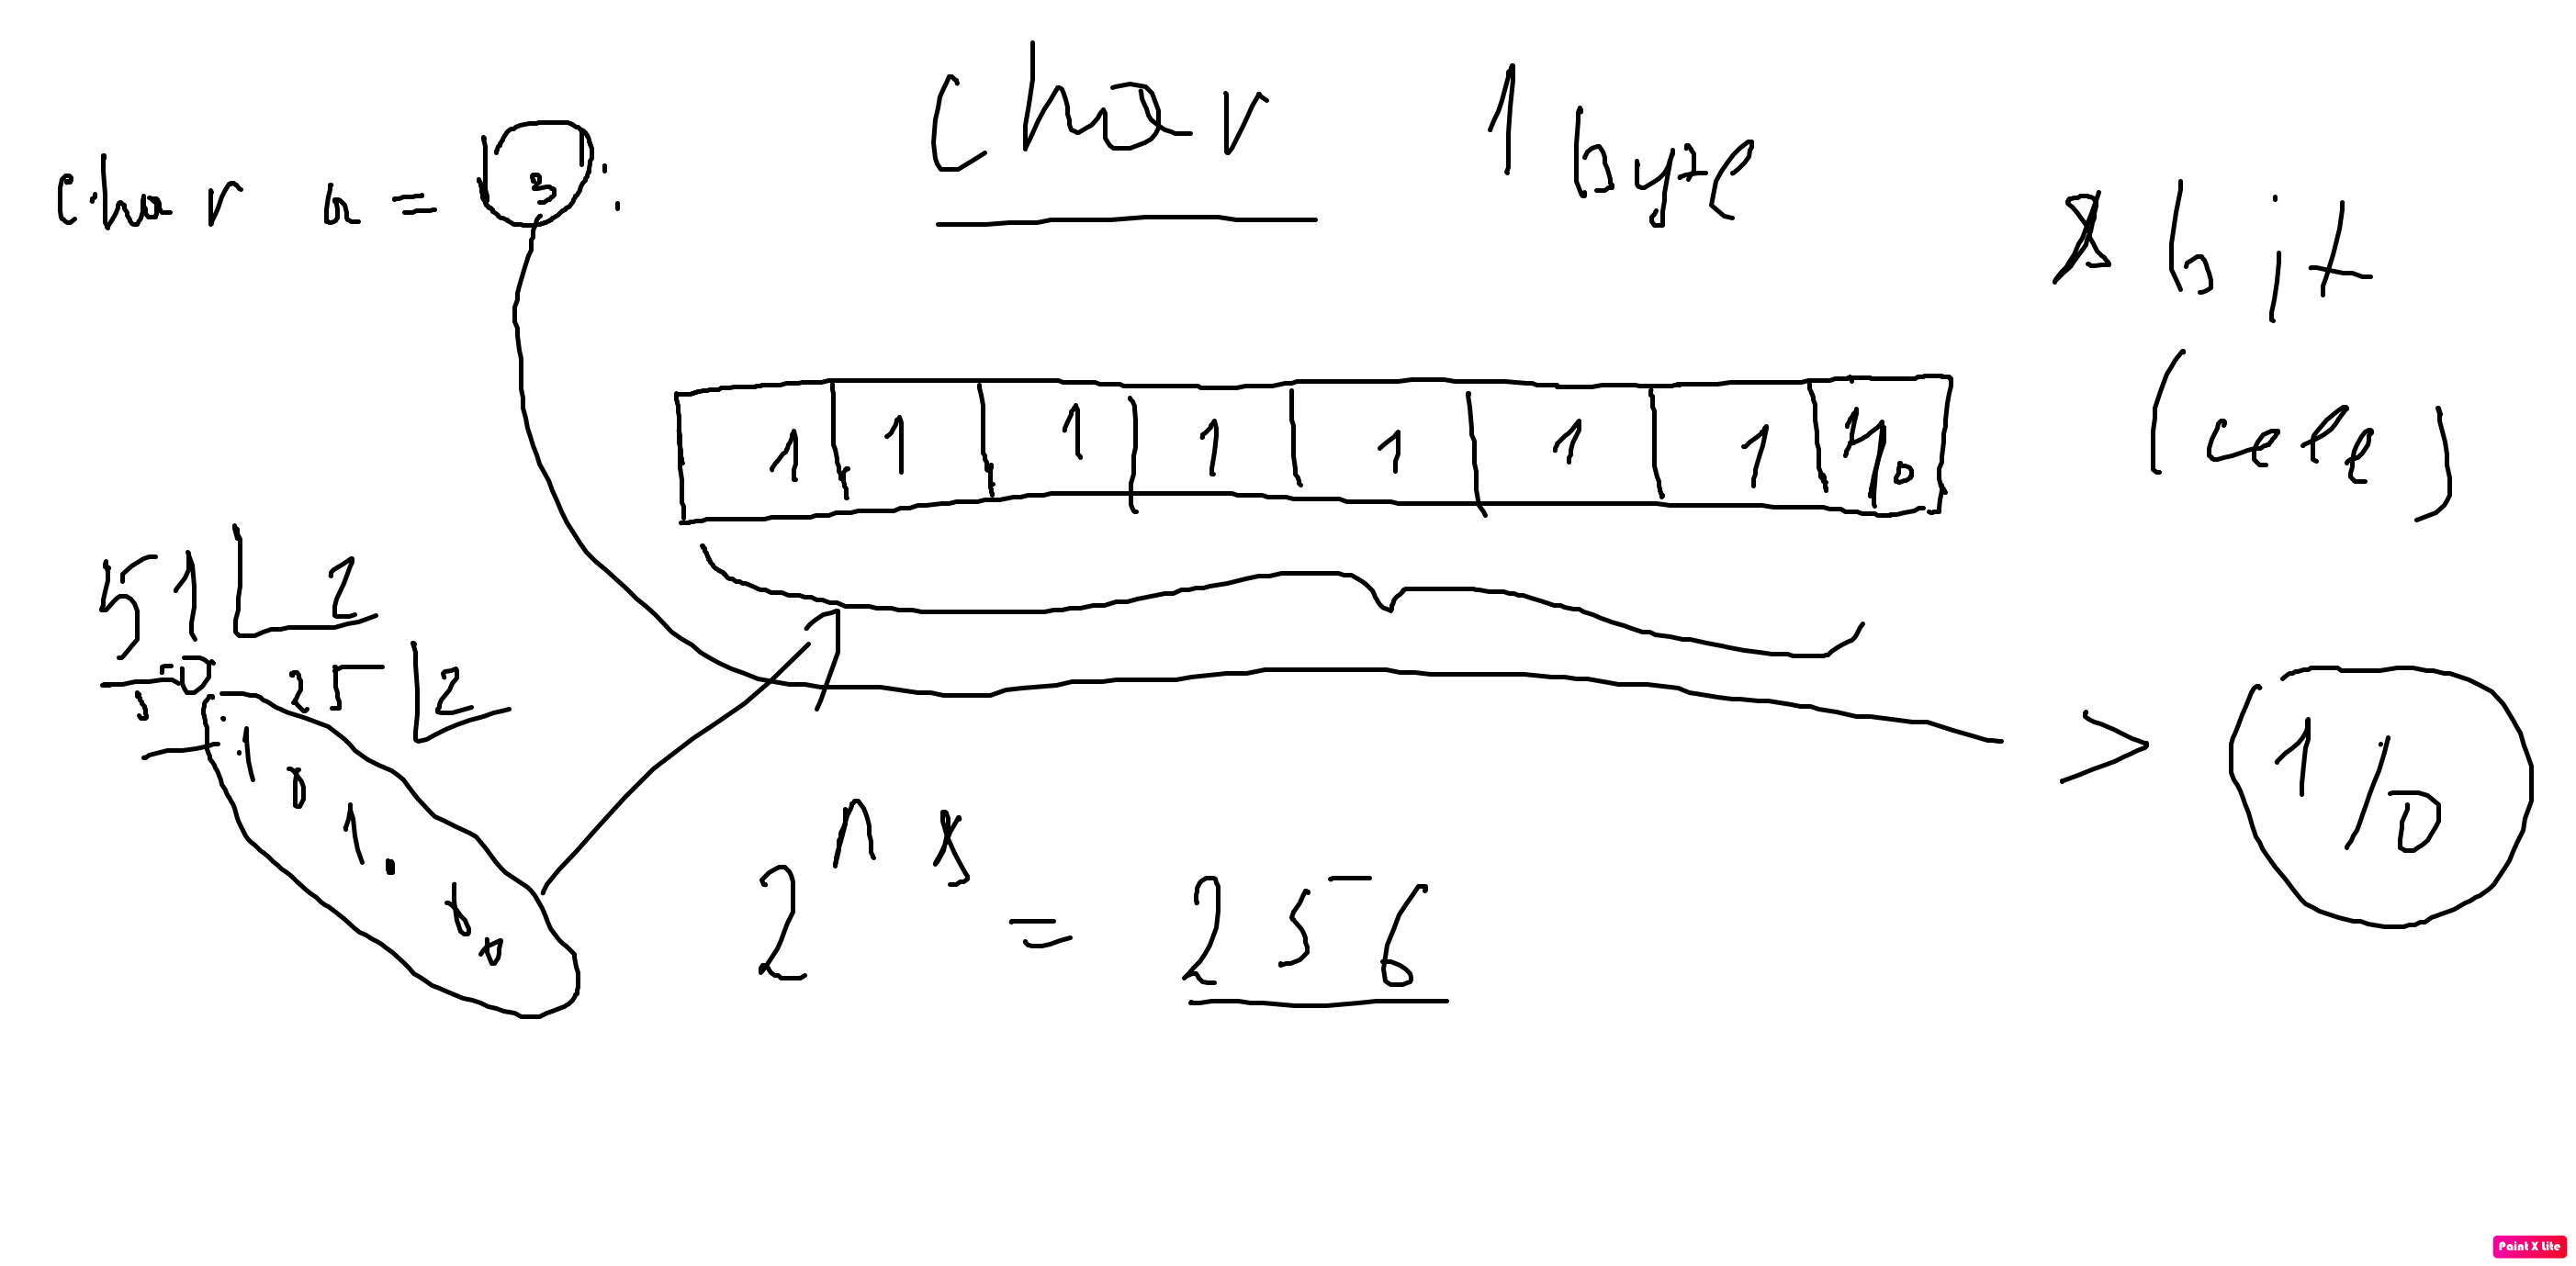 char 1 byte
char a = '3';
8 bit
(cell)
1 1 1 1 1 1 1 1/0
51 2
50 25 2
1/0
1 0 1
2^8 = 256
Paint X Lite